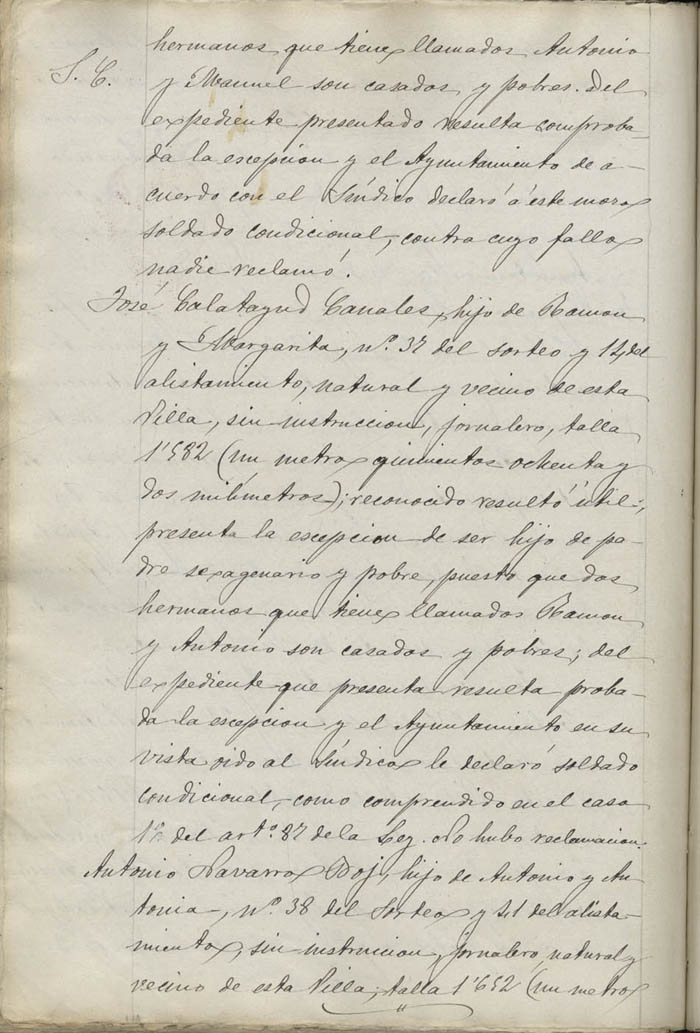 hermanos que tiene llamados Antonio
S. C.
y Manuel son casados y pobres. Del
expediente presentado resulta comproba-
da la escepcion y el Ayuntamiento de a-
cuerdo con el Síndico declaró á este mozo
soldado condicional, contra cuyo fallo
nadie reclamó.
José Calatayud Canales, hijo de Ramon
y Margarita, nº. 37 del sorteo y 14, del
alistamiento, natural y vecino de esta
Villa, sin instruccion, jornalero, talla
1'582 (un metro quinientos ochenta y
dos milímetros); reconocido resultó útil;
presenta la escepcion de ser hijo de pa-
dre sexagenario y pobre, puesto que dos
hermanos que tiene llamados Ramon
y Antonio son casados y pobres; del
expediente que presenta resulta proba-
da la escepcion y el Ayuntamiento en su
vista oido al Síndico le declaró soldado
condicional, como comprendido en el caso
1º del artº. 87 de la Ley. No hubo reclamacion.
Antonio Navarro Boj, hijo de Antonio y An-
tonia, nº. 38 del sorteo y 41 del alista-
miento, sin instrucion, jornalero, natural y
vecino de esta Villa, talla 1'652 (un metro